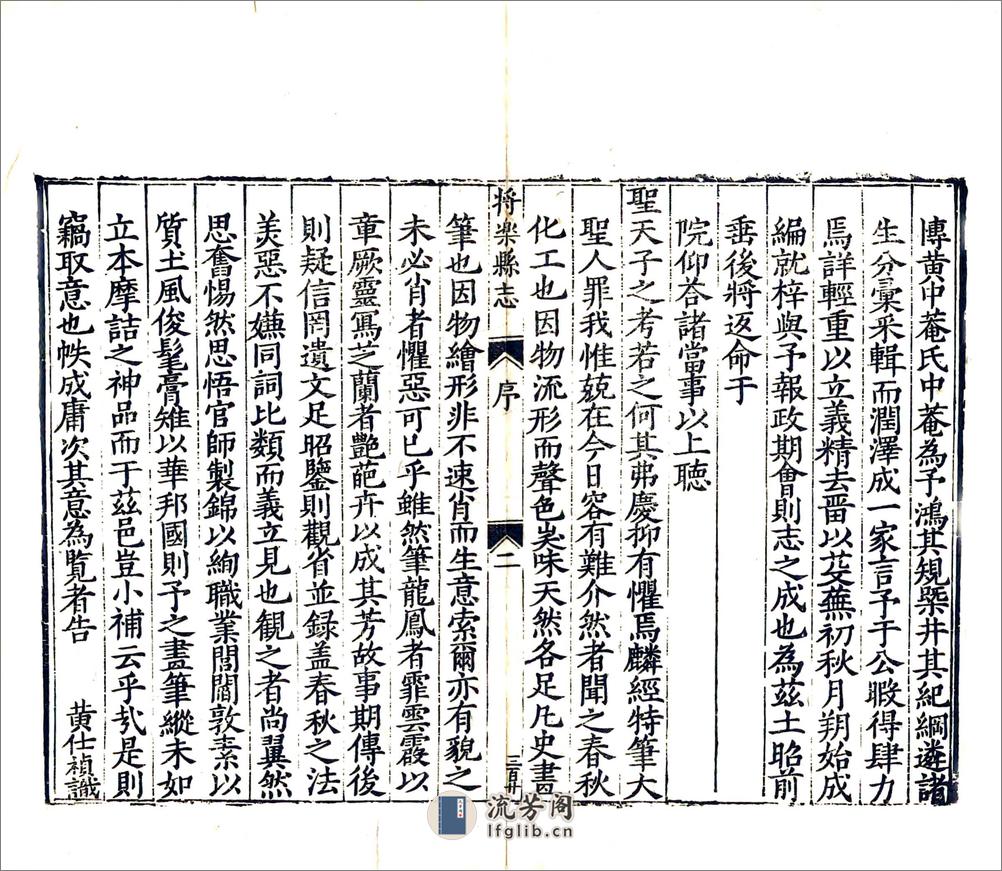 博黄中菴氏中菴為予鴻其規槩井其紀綱遴諸
生分彙采輯而潤澤成一家言予于公暇得肆力
焉詳輕重以立義精去畱以芟蕪初秋月朔始成
編就梓與予報政期會則志之成也為茲土昭前
垂後將返命于
院仰答諸當事以上聽
聖天子之考若之何其弗慶抑有懼焉麟經特筆大
聖人罪我惟兢在今日容有難介然者聞之春秋
化工也因物流形而聲色臭味天然各足凡史畫
将樂縣志
序
二
筆也因物繪形非不速肖而生意索爾亦有貌之
未必肖者懼惡可已乎雖然筆龍鳳者霏雲霞以
章厥靈冩芝蘭者艷葩卉以成其芳故事期傳後
則疑信罔遺文足昭鑒則觀省並録盖春秋之法
美惡不嫌同詞比類而義立見也観之者尚翼然
思奮惕然思悟官師製錦以絢職業閭閻敦素以
質土風俊髦膏雉以華邦國則予之畫筆縱未如
立本摩詰之神品而于茲邑豈小補云乎哉是則
竊取意也帙成庸次其意為覧者告
黄仕禎識
流芳阁
lfglib.cn